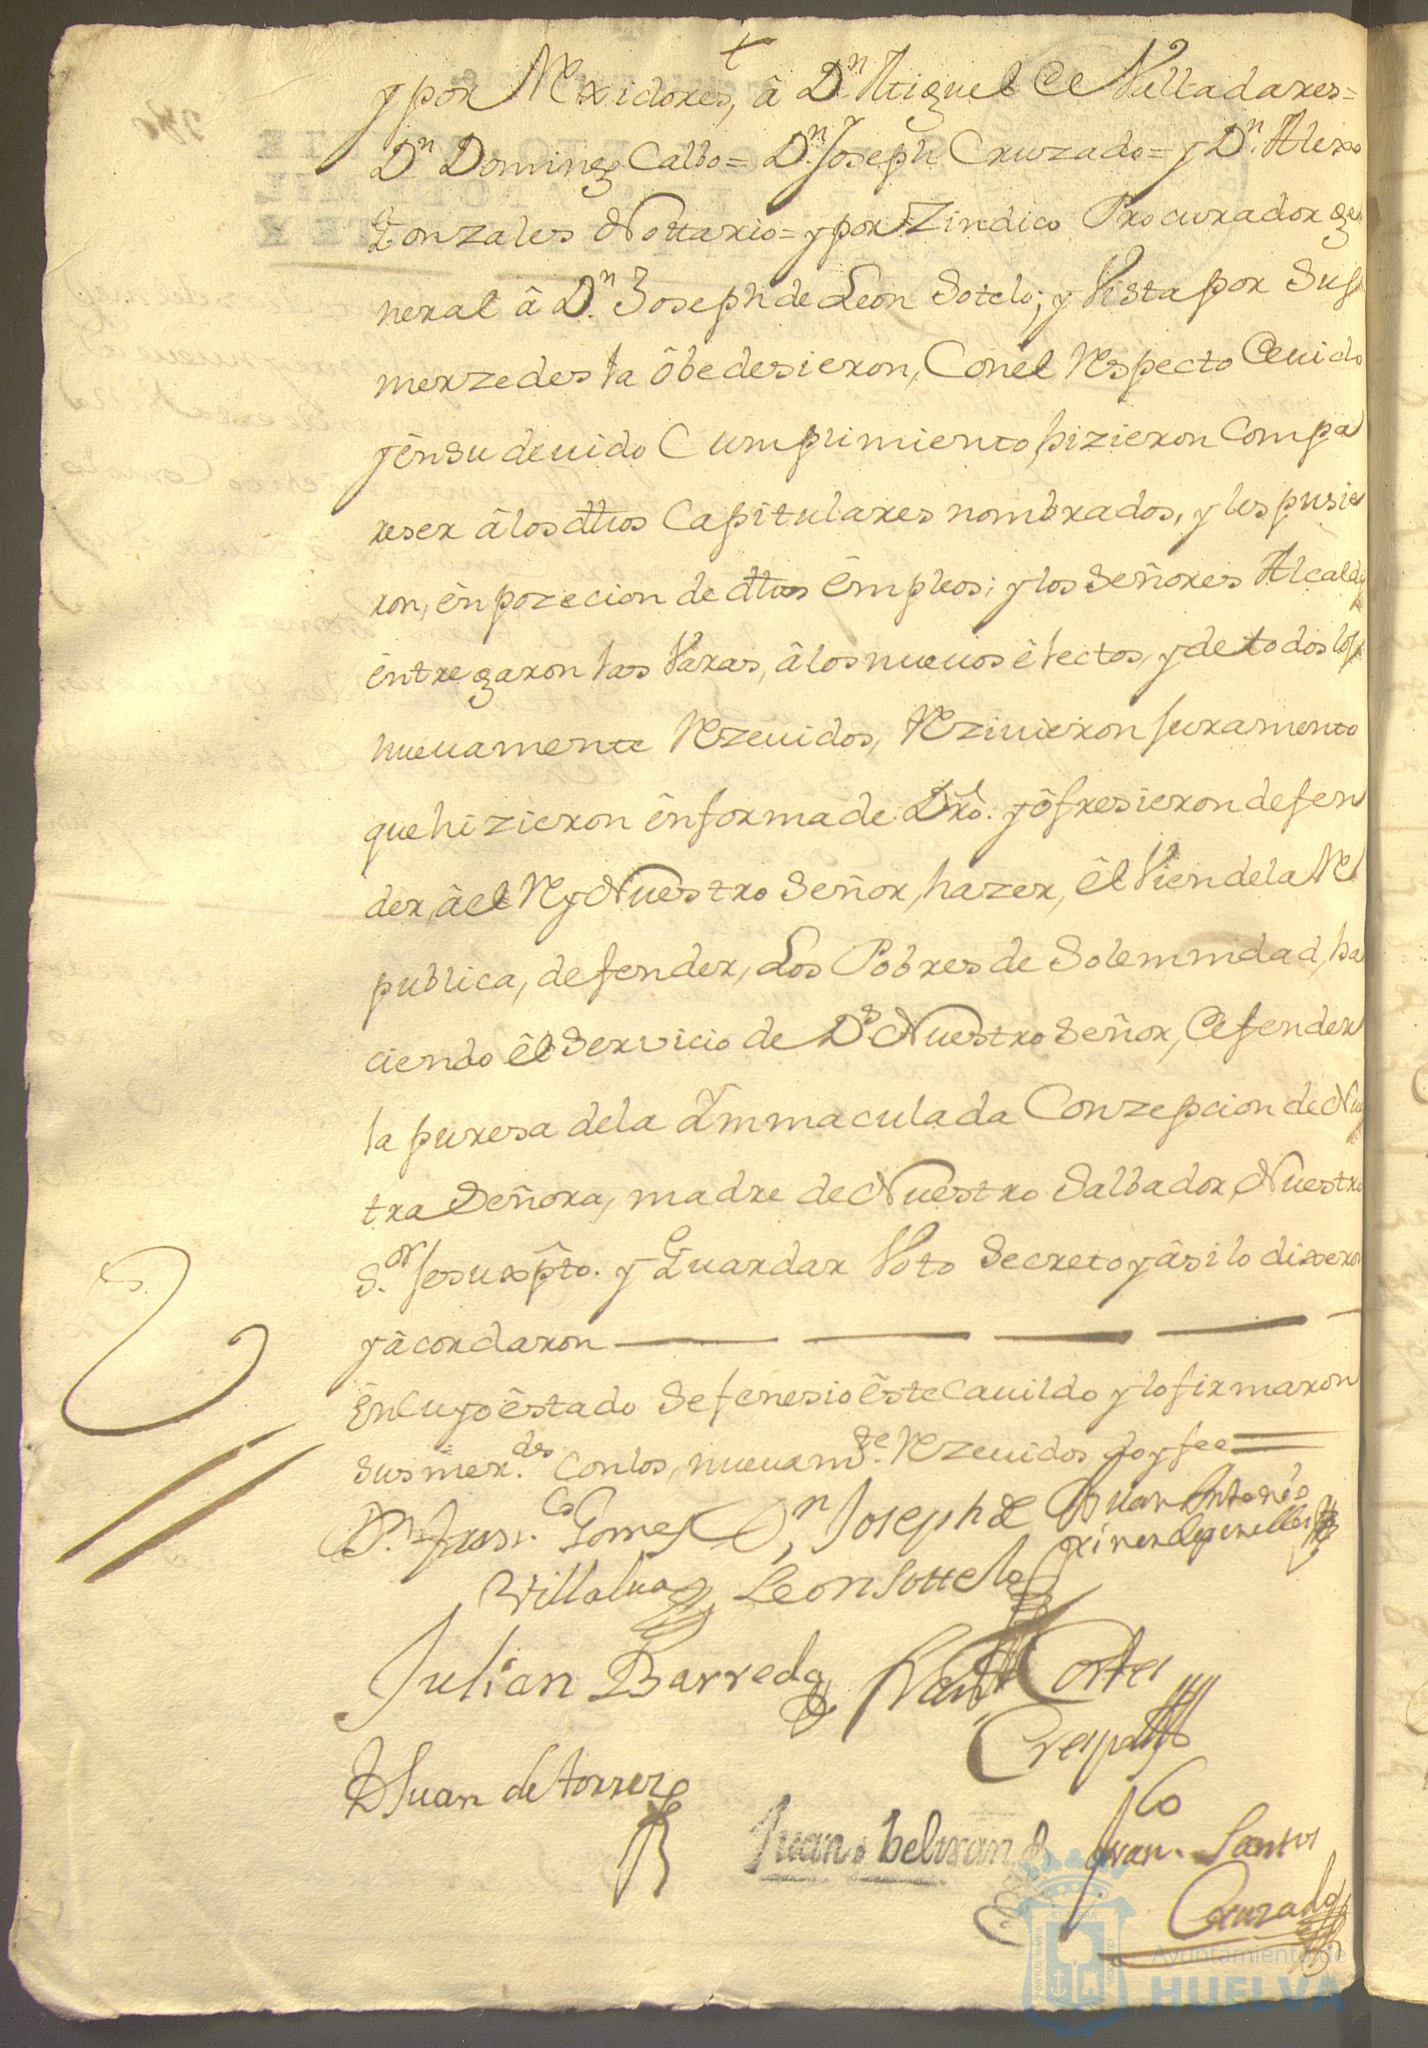 y por Rexidores, â Dn. Miguel de Valladares=
Dn Domingo Calbo= Dn. Joseph Cruzado= y Dn. Alexo
Gonzales Nottario= y por Zindico Procurador ge
neral â Dn. Joseph de Leon Sotelo; y Vista por Sus
merzedes la ôbedesieron, Con el Respecto devido
y ên su devido Cumplimiento, hizieron Compa
reser â los dhos Capitulares nombrados, y les pusie
ron, ên pozecion de dhos êmpleos; y los Señores Alcaldes
êntregaron las Varas, â los nuevos êlectos, y de todos los
nuevamente Rezevidos, Rezivieron Juramento
que hizieron ên forma de Dro. y ôfresieron defen
der, â el Rey Nuestro Señor, hazer, êl Vien de la Re
publica, defender, Los Pobres de Solemnidad, ha
ciendo êl Servicio de Ds. Nuestro Señor, defender
la puresa de la Ymmaculada Conzepcion de Nues
tra Señora, madre de Nuestro Salbador, Nuestro
S.or Jesuxpto. y Guardar Voto Secreto y âsi lo dixeron
y âcordaron
Ên Cuyo êstado Se fenesio êste Cavildo y lo firmaron
Sus mer.des Con los, nuevamte. Rezevidos doy fee=
Dn. Franco. Gomes Dn Joseph de Juan Antonio
Villalva Leon Sottelo
Julian Barreda Cortes
Crespo
D Juan de torres
Juan beltran Franco. Santos
Cruzado
Ayuntamiento de
HUELVA